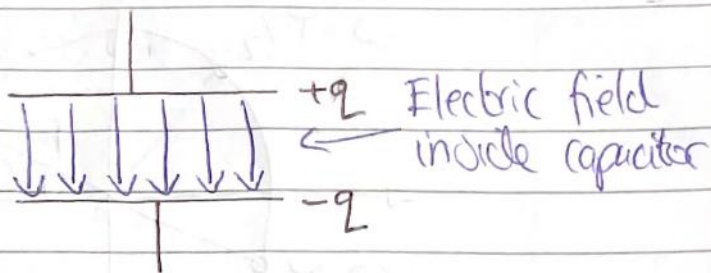 +q Electric field
inside capacitor
-q